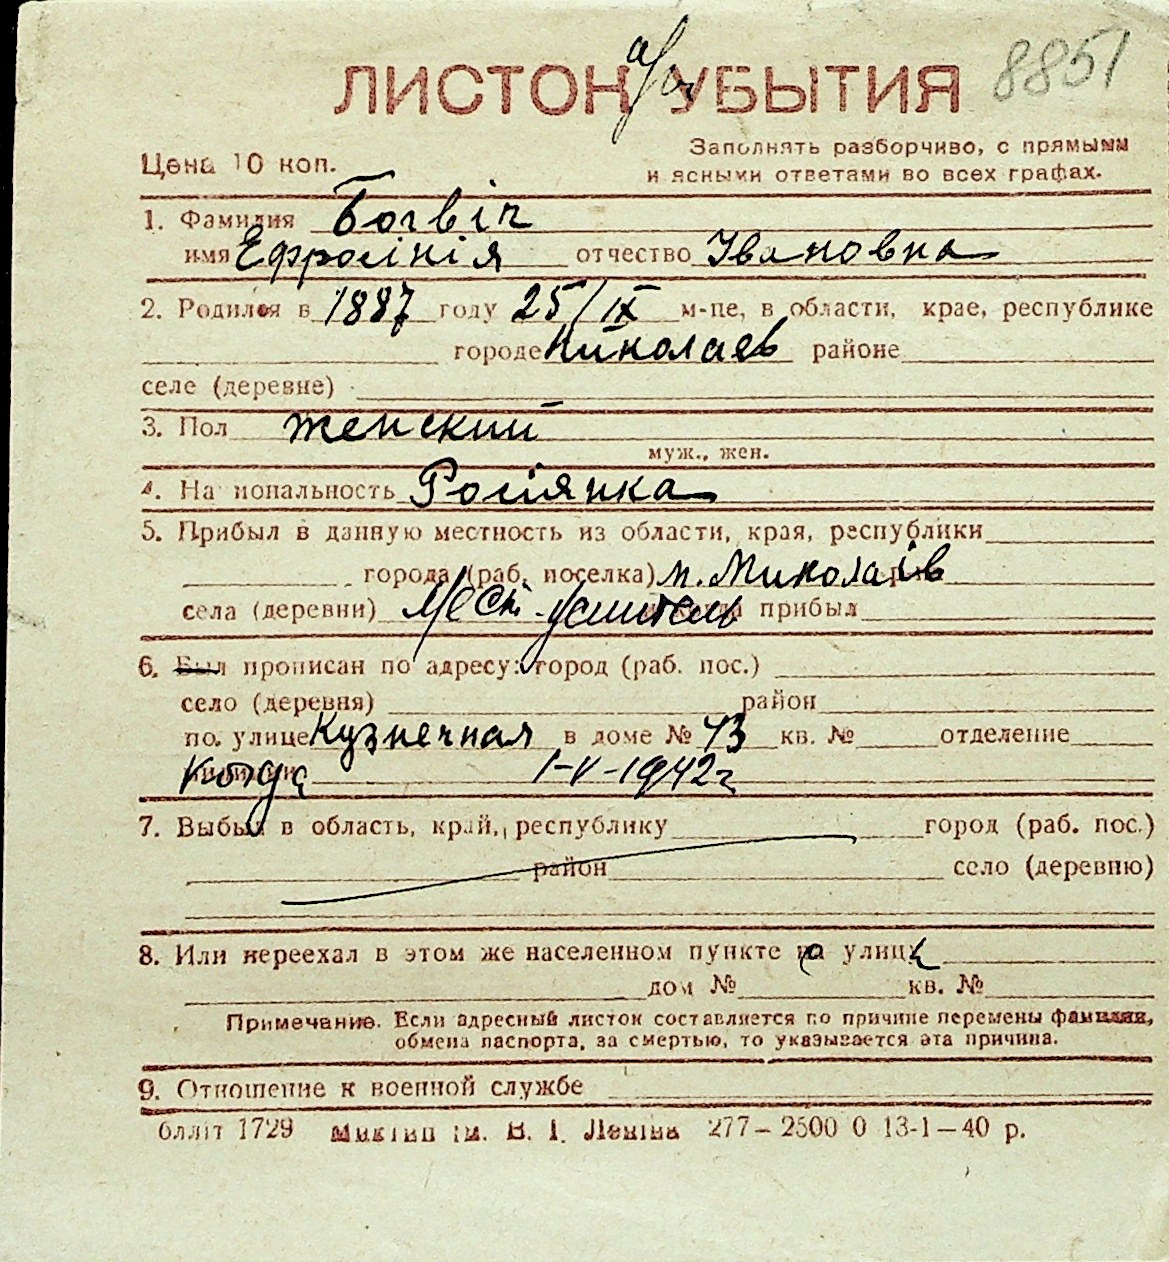 8851
ЛИСТОК УБЫТИЯ
Цена 10 коп.
Заполнять разборчиво, с прямыми
и ясными ответами во всех графах.
1. Фамилия Богвін
имя Ефросінія отчество Івановна
2. Родился в 1887 году 25/IX м-це, в области, крае, республике
городе Николаев районе
селе (деревне)
3. Пол женский
муж., жен.
4. Национальность Росіянка
5. Прибыл в данную местность из области, края, республики
города (раб. поселка) м. Миколаїв
села (деревни) Мест. житель прибыл
6. Был прописан по адресу: город (раб. пос.)
село (деревня) район
по улице Кузнечная в доме № 43 кв. № отделение
Когда 1-V-1942 г
7. Выбыл в область, край, республику город (раб. пос.)
район село (деревню)
8. Или переехал в этом же населенном пункте на улицу
дом № кв. №
Примечание. Если адресный листок составляется по причине перемены фамилии,
обмена паспорта, за смертью, то указывается эта причина.
9. Отношение к военной службе
блліт 1729 ім. В. І. Леніна 277—2500 0 13-1—40 р.